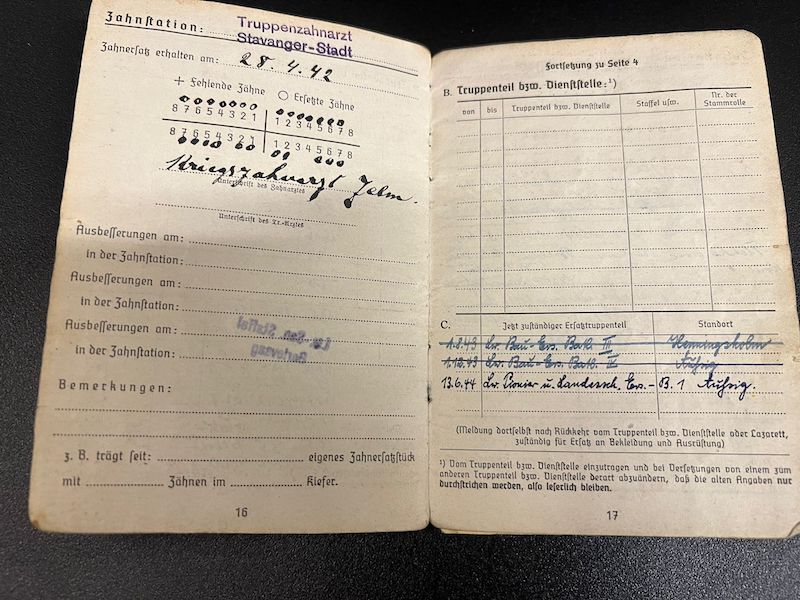 Zahnstation:
Truppenzahnarzt
Stavanger-Stadt
Zahnersatz erhalten am: 28.4.42
+ Fehlende Zähne O Ersetzte Zähne
8 7 6 5 4 3 2 1 1 2 3 4 5 6 7 8
8 7 6 5 4 3 2 1 1 2 3 4 5 6 7 8
Kriegszahnarzt
Unterschrift des Zahnarztes
Unterschrift des Tr.-Arztes
Ausbesserungen am:
in der Zahnstation:
Ausbesserungen am:
in der Zahnstation:
Ausbesserungen am:
in der Zahnstation:
Bemerkungen:
z. B. trägt seit: eigenes Zahnersatzstück
mit Zähnen im Kiefer.
16
Fortsetzung zu Seite 4
B. Truppenteil bzw. Dienststelle:¹)
von bis Truppenteil bzw. Dienststelle Staffel usw. Nr. der Stammrolle
C. Jetzt zuständiger Ersatztruppenteil Standort
1.8.43 Lw. Bau-Ers. Batl. III Henningsholm
1.12.43 Lw. Bau-Ers. Batl. IV Aussig
13.6.44 Lw. Pionier u. Landessch. Ers.-B. 1 Aussig.
(Meldung dortselbst nach Rückkehr vom Truppenteil bzw. Dienststelle oder Lazarett,
zuständig für Ersatz an Bekleidung und Ausrüstung)
¹) Vom Truppenteil bzw. Dienststelle einzutragen und bei Versetzungen von einem zum
anderen Truppenteil bzw. Dienststelle derart abzuändern, daß die alten Angaben nur
durchstrichen werden, also leserlich bleiben.
17